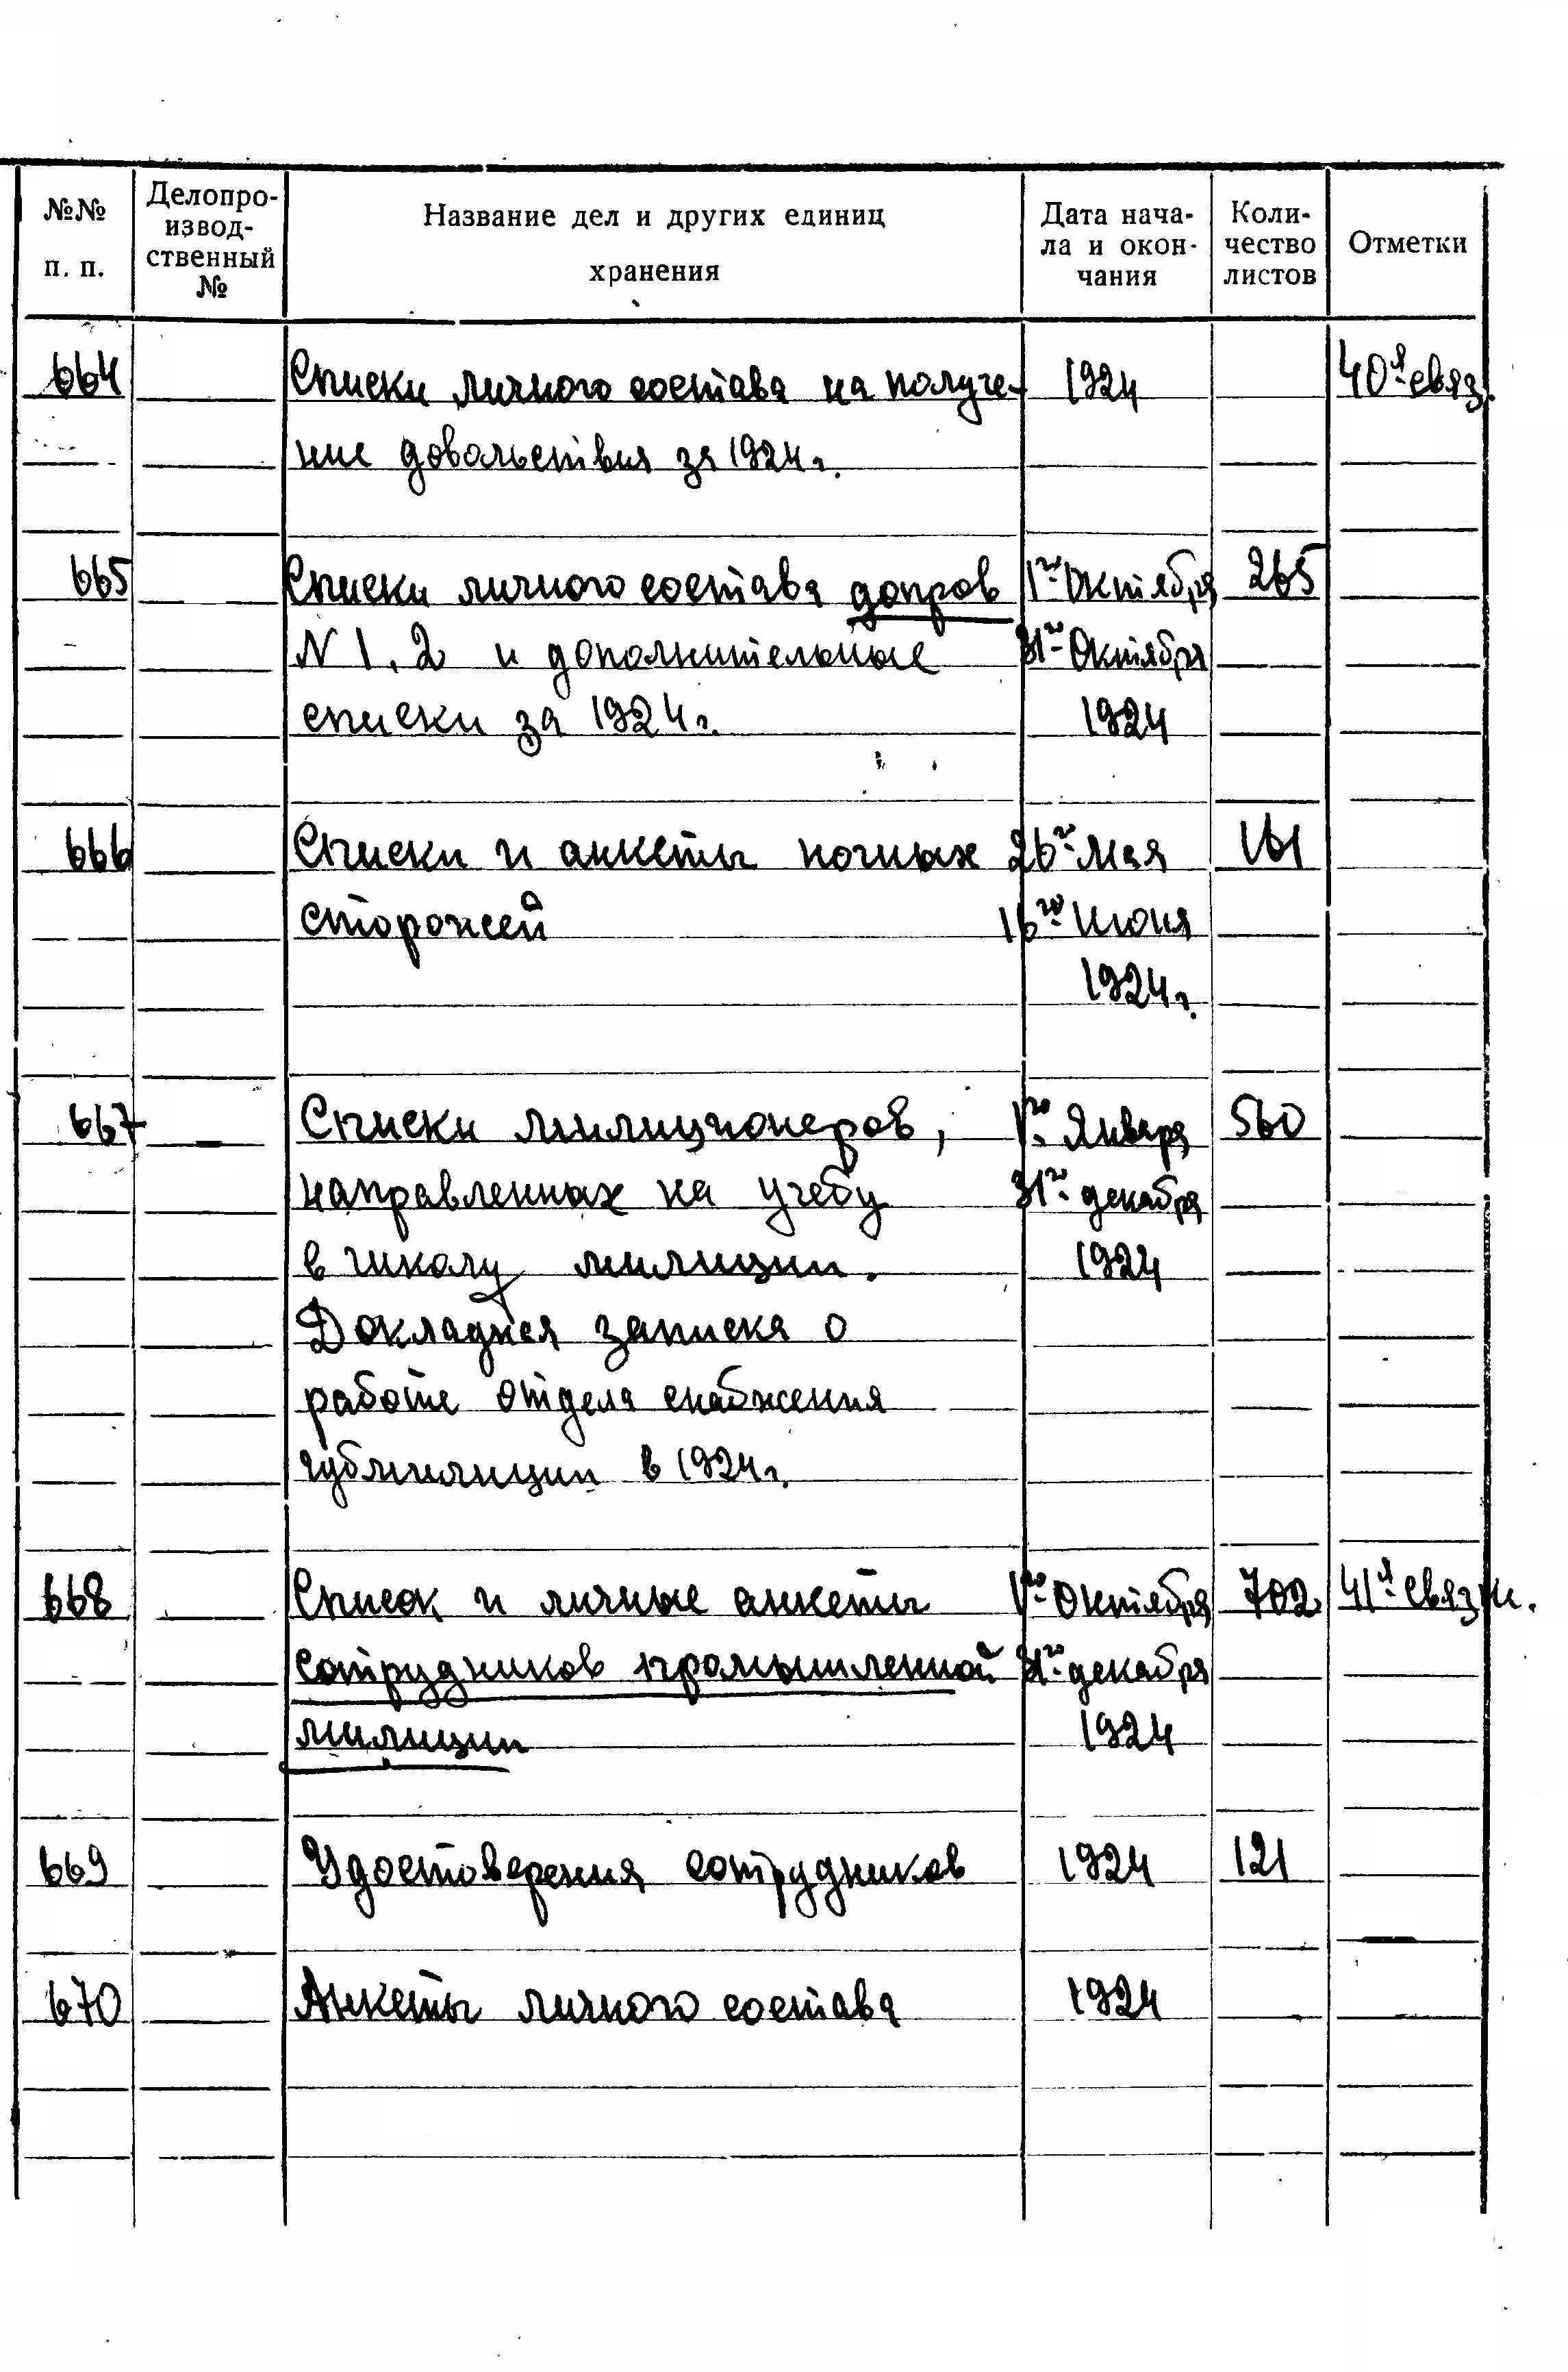 №№ п. п.
Делопро-
извод-
ственный
№
Название дел и других единиц
хранения
Дата нача-
ла и окон-
чания
Коли-
чество
листов
Отметки
664 Списки личного состава на получе- 1924 40я связ.
ние довольствия за 1924 г.
665 Списки личного состава допров 1го Октября 265
N 1, 2 и дополнительные 31го Октября
списки за 1924 г. 1924
666 Списки и анкеты ночных 26го Мая 161
сторожей 16го Июня
1924 г.
667 Списки милиционеров, 1го Января 560
направленных на учебу 31го декабря
в школу милиции. 1924
Докладная записка о
работе отдела снабжения
губмилиции в 1924 г.
668 Список и личные анкеты 1го Октября 702 41я связк.
сотрудников промышленной 31го декабря
милиции 1924
669 Удостоверения сотрудников 1924 121
670 Анкеты личного состава 1924